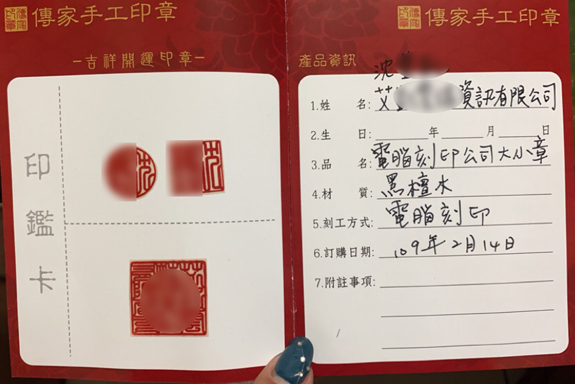 傳家手工印章
－吉祥開運印章－
印鑑卡
傳家手工印章
產品資訊
沈
1.姓名: 艾 資訊有限公司
2.生日: 年 月 日
3.品名: 電腦刻印公司大小章
4.材質: 黑檀木
5.刻工方式: 電腦刻印
6.訂購日期: 109年2月14日
7.附註事項: